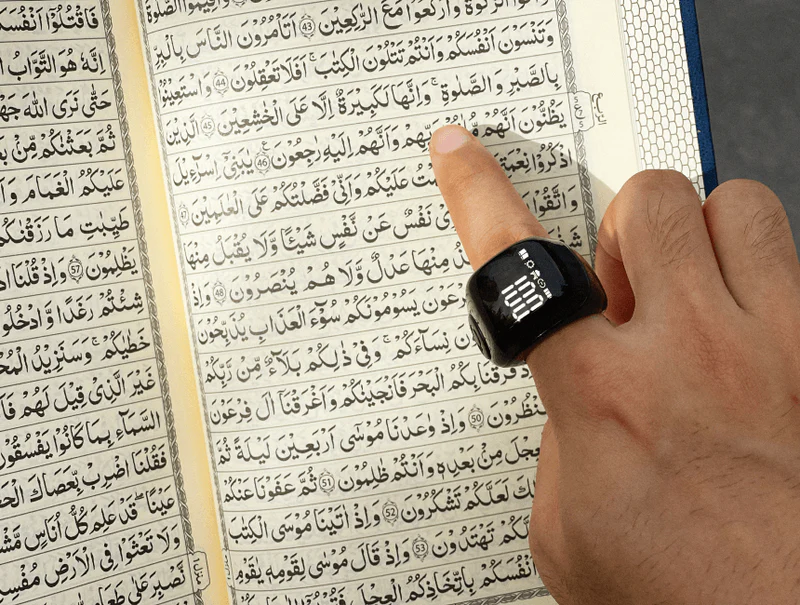 وَاَقِيْمُوا الصَّلٰوةَ
الزَّكٰوةَ وَارْكَعُوْا مَعَ الرّٰكِعِيْنَ 43 اَتَاْمُرُوْنَ النَّاسَ بِالْبِرِّ
وَتَنْسَوْنَ اَنْفُسَكُمْ وَاَنْتُمْ تَتْلُوْنَ الْكِتٰبَ ؕ اَفَلَا تَعْقِلُوْنَ 44 وَاسْتَعِيْنُوْا
بِالصَّبْرِ وَالصَّلٰوةِ ؕ وَاِنَّهَا لَكَبِيْرَةٌ اِلَّا عَلَى الْخٰشِعِيْنَ 45 الَّذِيْنَ
يَظُنُّوْنَ اَنَّهُمْ رَبِّهِمْ وَاَنَّهُمْ اِلَيْهِ رٰجِعُوْنَ 46 يٰبَنِيْۤ اِسْرَآءِيْلَ
اذْكُرُوْا نِعْمَتِيَ عَلَيْكُمْ وَاَنِّيْ فَضَّلْتُكُمْ عَلَى الْعٰلَمِيْنَ 47
وَاتَّقُوْا نَفْسٌ عَنْ نَّفْسٍ شَيْـًٔا وَّلَا يُقْبَلُ مِنْهَا
مِنْهَا عَدْلٌ وَّلَا هُمْ يُنْصَرُوْنَ 48 وَاِذْ
يَسُوْمُوْنَكُمْ سُوْٓءَ الْعَذَابِ يُذَبِّحُوْنَ
نِسَآءَكُمْ ؕ وَفِيْ ذٰلِكُمْ بَلَآءٌ مِّنْ رَّبِّكُمْ
فَرَقْنَا بِكُمُ الْبَحْرَ فَاَنْجَيْنٰكُمْ وَاَغْرَقْنَآ اٰلَ فِرْعَوْنَ
تَنْظُرُوْنَ 50 وَاِذْ وٰعَدْنَا مُوْسٰٓى اَرْبَعِيْنَ لَيْلَةً ثُمَّ
الْعِجْلَ مِنْ بَعْدِهٖ وَاَنْتُمْ ظٰلِمُوْنَ 51 ثُمَّ عَفَوْنَا عَنْكُمْ
لَعَلَّكُمْ تَشْكُرُوْنَ 52 وَاِذْ اٰتَيْنَا مُوْسَى الْكِتٰبَ
تَهْتَدُوْنَ 53 وَاِذْ قَالَ مُوْسٰى لِقَوْمِهٖ يٰقَوْمِ
اَنْفُسَكُمْ بِاتِّخَاذِكُمُ الْعِجْلَ
فَاقْتُلُوْٓا اَنْفُسَكُمْ
اِنَّهٗ هُوَ التَّوَّابُ
حَتّٰى نَرَى اللّٰهَ
ثُمَّ بَعَثْنٰكُمْ مِّنْ
عَلَيْكُمُ الْغَمَامَ
طَيِّبٰتِ مَا رَزَقْنٰكُمْ
يَظْلِمُوْنَ 57 وَاِذْ قُلْنَا
شِئْتُمْ رَغَدًا وَّادْخُلُوا
خَطٰيٰكُمْ ؕ وَسَنَزِيْدُ
غَيْرَ الَّذِيْ قِيْلَ لَهُمْ
السَّمَآءِ بِمَا كَانُوْا يَفْسُقُوْنَ
فَقُلْنَا اضْرِبْ بِّعَصَاكَ
عَيْنًا ؕ قَدْ عَلِمَ كُلُّ اُنَاسٍ
وَلَا تَعْثَوْا فِى الْاَرْضِ
نَّصْبِرَ عَلٰى طَعَامٍ